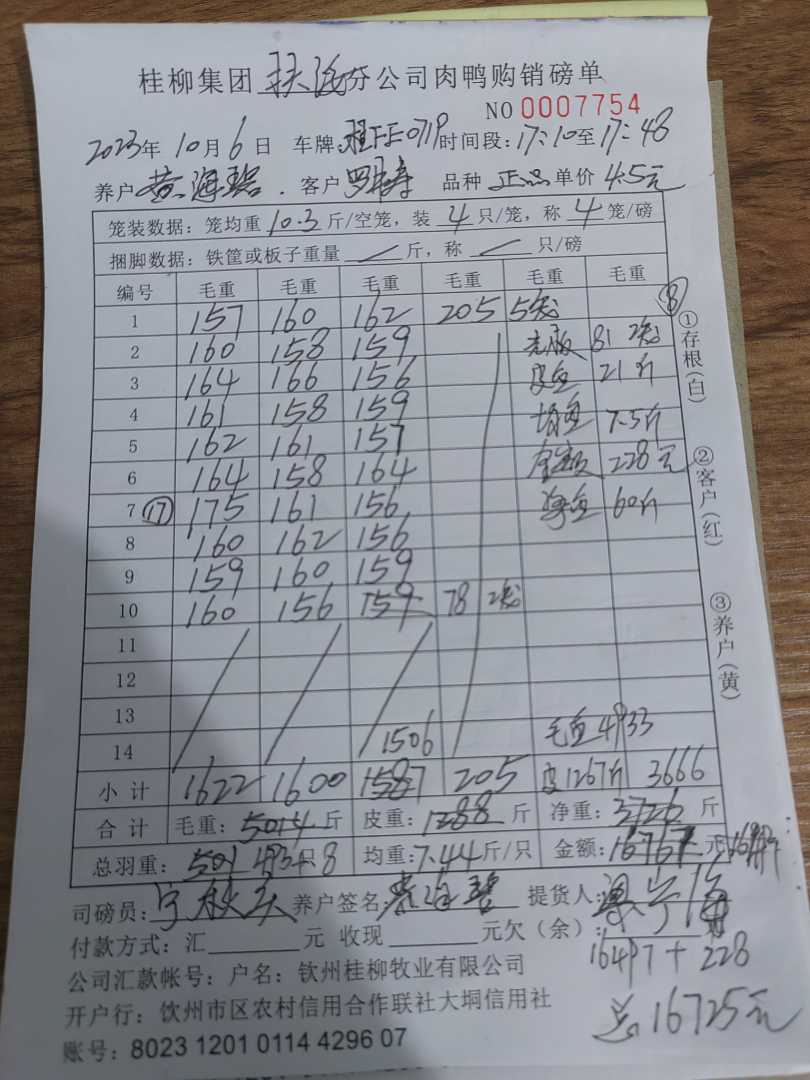 桂柳集团 扶 分公司肉鸭购销磅单
NO 0007754
2023年 10月 6日 车牌: 0719 时间段: 17:10至17:48
养户 黄海碧 . 客户 罗 品种 正品 单价 4.5元
笼装数据: 笼均重 10.3 斤/空笼, 装 4 只/笼, 称 4 笼/磅
捆脚数据: 铁筐或板子重量 / 斤, 称 / 只/磅
编号 毛重 毛重 毛重 毛重 毛重 毛重
1 157 160 162 205 5 ⑧
2 160 158 159 81 2
3 164 166 156 皮重 21斤
4 161 158 159 7.5斤
5 162 161 157 金额 228元
6 164 158 164 净重 60斤
7 ⑰ 175 161 156
8 160 162 156
9 159 160 159
10 160 156 159 78 2
11
12
13 1506 毛重 4933
14
小计 1622 1600 1587 205 皮1267斤 3666
合计 毛重: 5014 斤 皮重: 1288 斤 净重: 3726 斤
总羽重: 501 493只 8 均重: 7.44斤/只 金额: 16767元
司磅员: 养户签名: 黄海碧 提货人:
付款方式: 汇 元 收现 元欠(余):
16497+228
公司汇款帐号: 户名: 钦州桂柳牧业有限公司
开户行: 钦州市区农村信用合作联社大垌信用社
总16725元
账号: 8023 1201 0114 4296 07
①存根(白)
②客户(红)
③养户(黄)